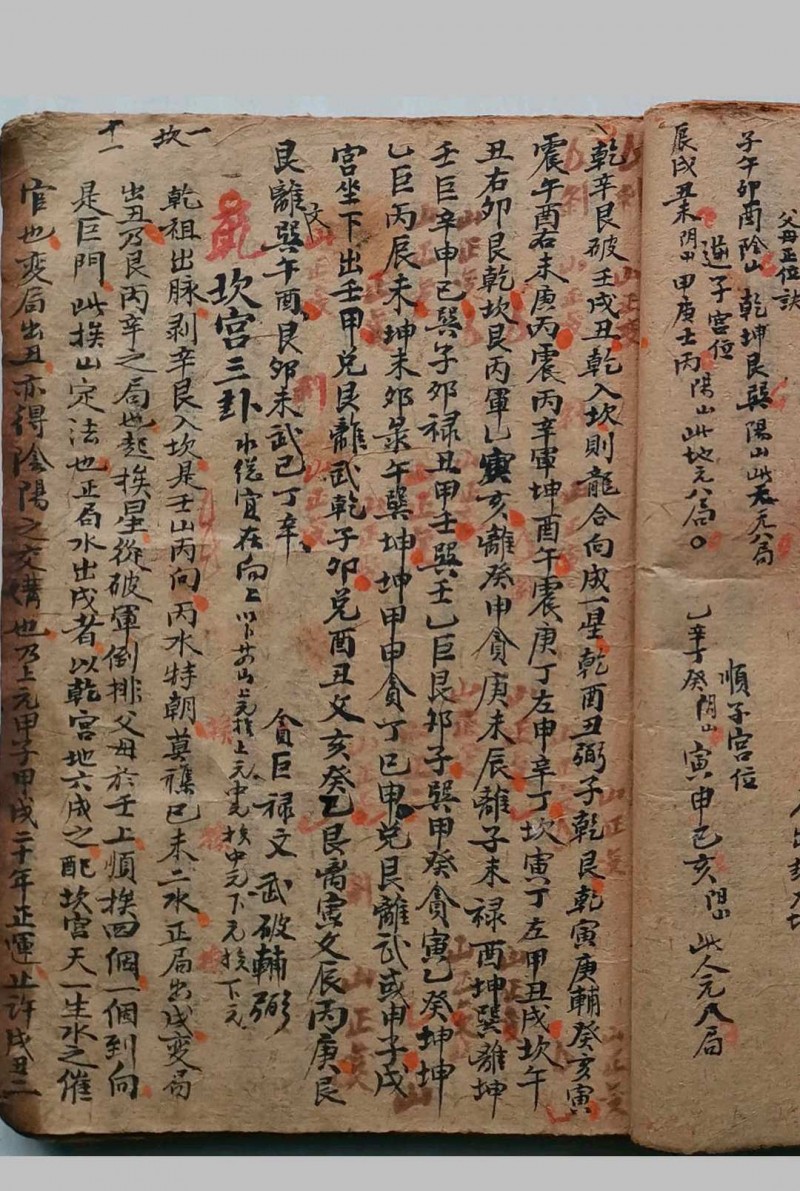 父母正位訣
子午卯酉陰山乾坤艮巽陽山此天元八局
逆子宮位
辰戌丑未陰山甲庚壬丙陽山此地元八局
順子宮位
乙辛丁癸陰山寅申巳亥陽山此人元八局
乾辛艮破壬戌丑乾入坎則龍合向成一星乾酉丑弼子乾艮乾寅庚輔癸亥寅
震午酉右未庚丙震丙辛軍坤酉午震庚丁左申辛丁坎寅丁左甲丑戌坎午
丑右卯艮乾坎艮丙軍乙寅亥離癸申貪庚未辰離子未祿酉坤巽離坤
壬巨辛申巳巽子卯祿丑甲壬巽壬乙巨艮卯子巽甲癸貪寅乙癸坤坤
乙巨丙辰未坤未卯彔午巽坤坤甲申貪丁巳申兌艮離武或甲子戌
宮坐下出壬甲兌艮離武乾子卯兌酉丑文亥癸乙艮离寅文辰丙庚艮
艮離文巽午酉艮卯未武巳丁辛
貪巨祿文武破輔弼
坎宮三卦
水總宜在向上
上元中元挨中元下元挨下元
一坎
乾祖出脉剥辛艮入坎是壬山丙向丙水特朝莫襍巳未二水正局出戌變局
出丑乃艮丙辛之局也起挨星從破軍倒排父母於壬上順挨四個一個到向
十一
是巨門此挨山定法也正局水出戌者以乾宮地六成之配坎宮天一生水之催
官也变局出丑亦得陰陽之交媾也乃上元甲子甲戌二十年正運並許戌丑二